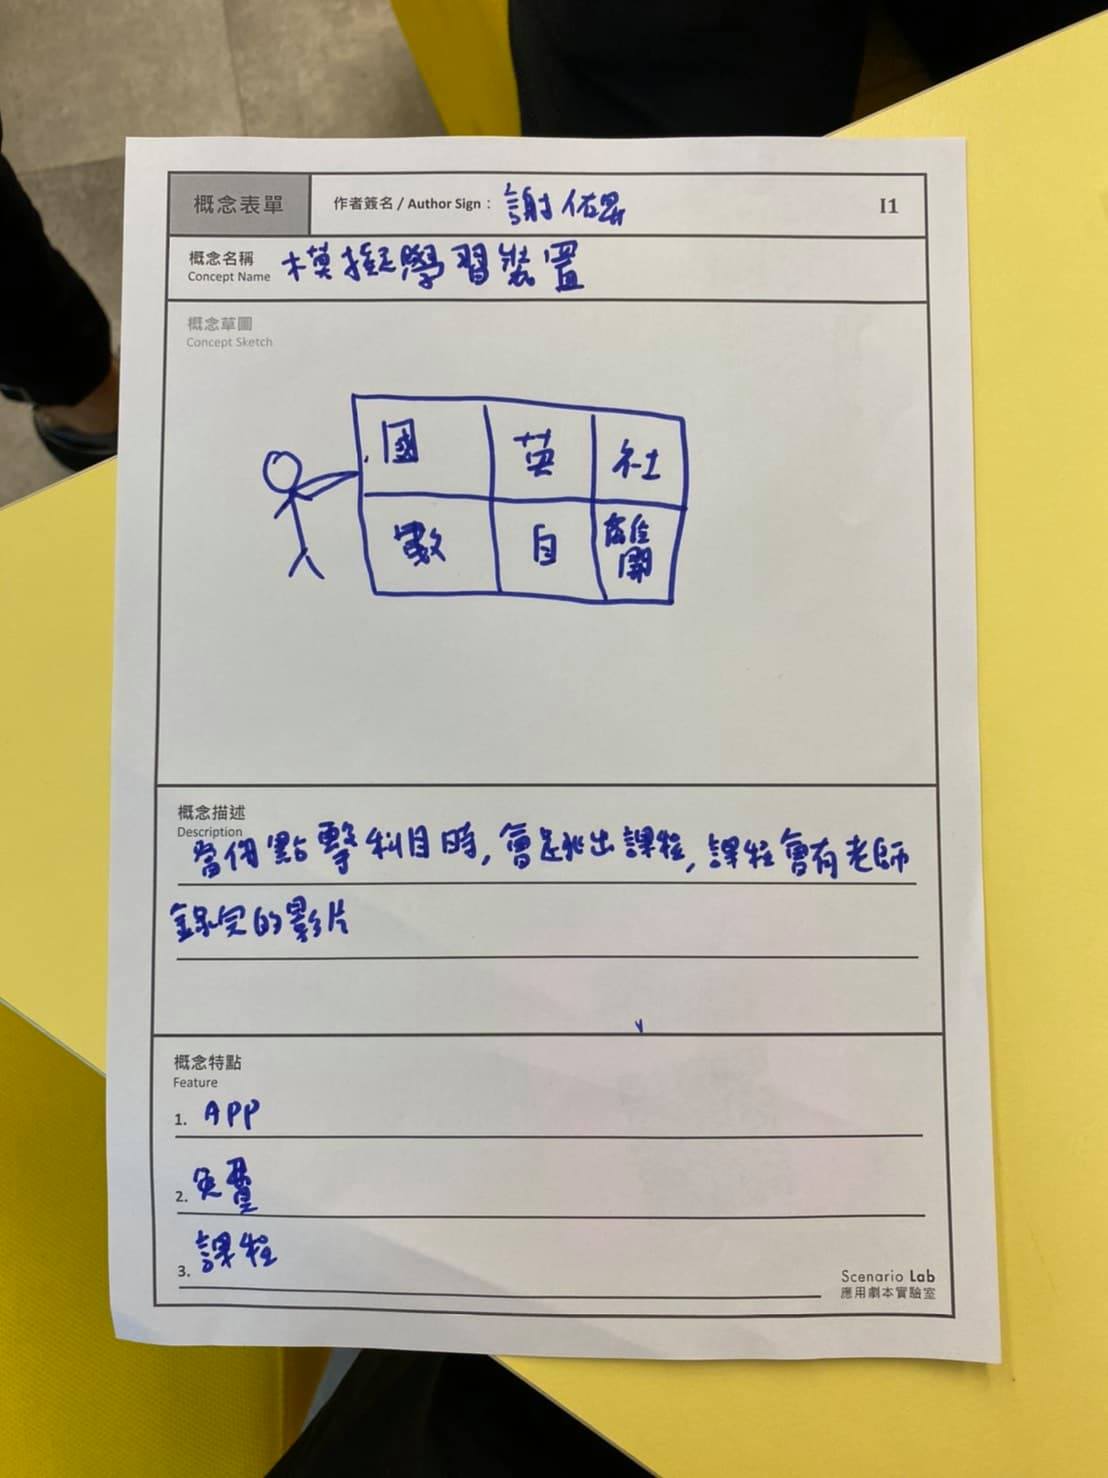 概念表單
作者簽名 / Author Sign : 謝佑
I1
概念名稱
Concept Name
模擬學習裝置
概念草圖
Concept Sketch
國 英 社
數 自 離開
概念描述
Description
當你點擊科目時, 會跳出課程, 課程會有老師
錄完的影片
概念特點
Feature
1. APP
2. 免費
3. 課程
Scenario Lab
應用劇本實驗室